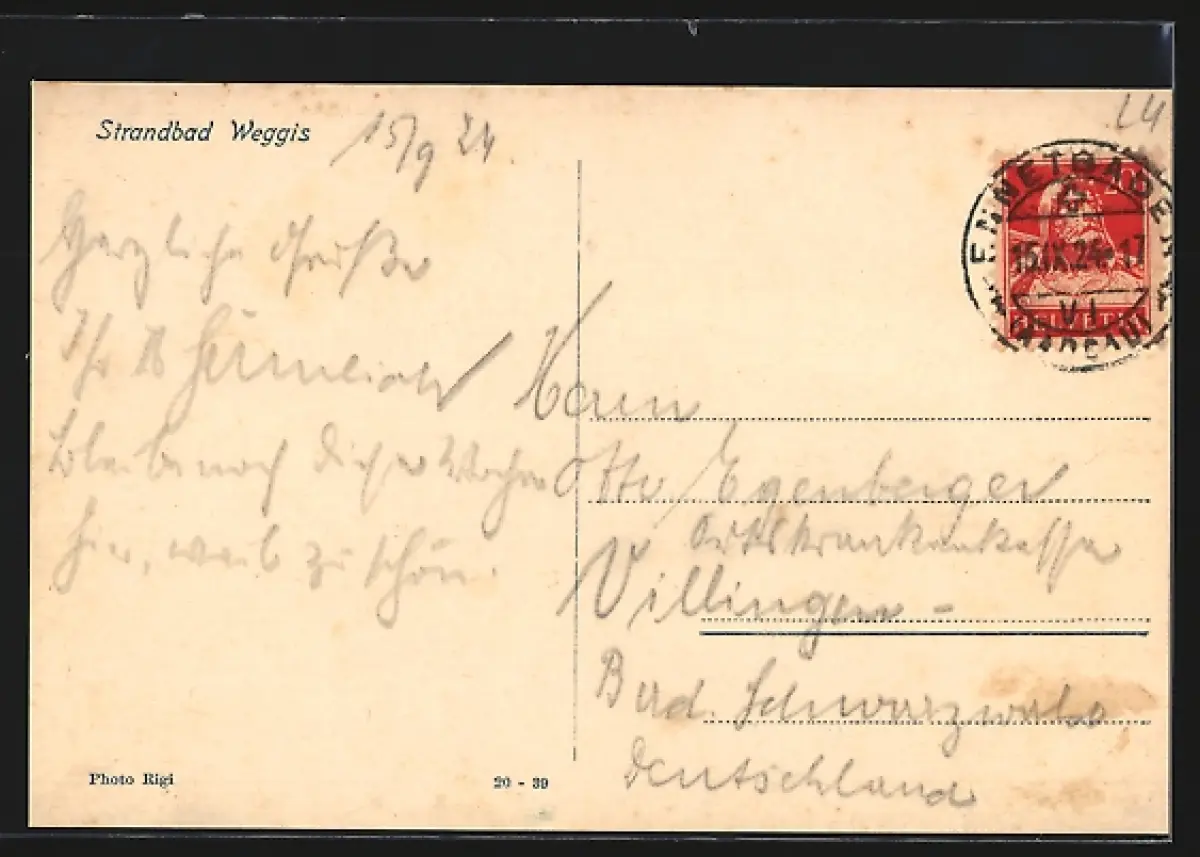 Strandbad Weggis
15/9 24
L4
ENNETBADEN
20
15.IX.24-17
VI
(AARGAU)
HELVETIA
Herzliche Grüße
bleibe noch Wochen
hier, weils zu schön.
Herrn
Otto Egenberger
Ortskrankenkasse
Villingen -
Bad. Schwarzwald
Deutschland
Photo Rigi
20 - 39